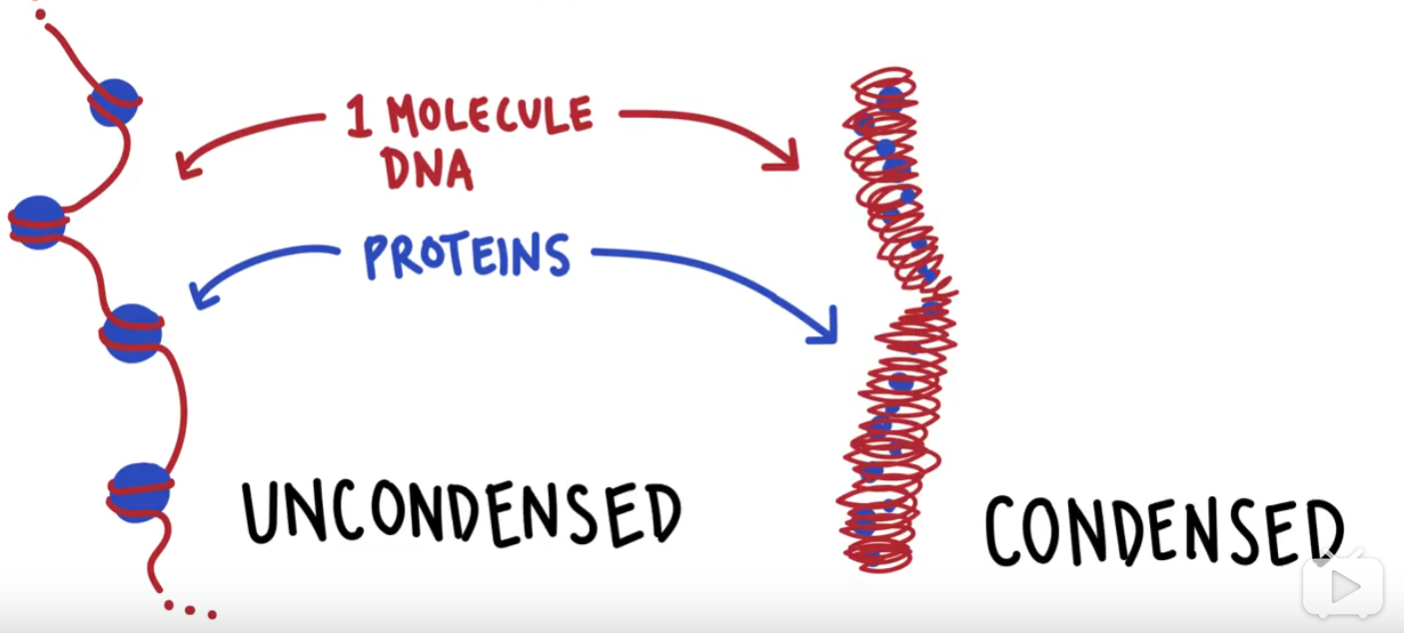 1 MOLECULE
DNA
PROTEINS
UNCONDENSED
CONDENSED